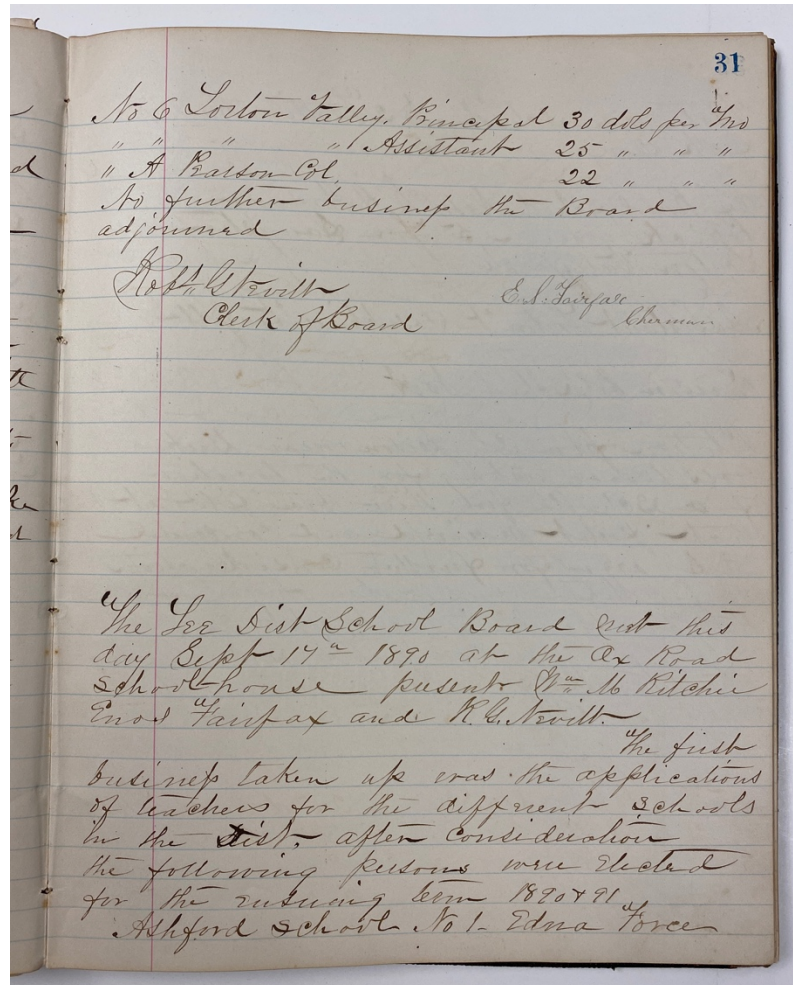 31
No 6 Lorton Valley. Principal 30 dols per Mo
" " " " Assistant 25 " " "
" A Col. 22 " " "
No further business the Board
adjourned
Robt G Nevitt
Clerk of Board
E. S. Fairfax
Cherman
The Lee Dist School Board met this
day Sept 17th 1890 at the Ox Road
school house present Wm M Ritchie
Enos Fairfax and R. G. Nevitt.
The first
business taken up was the applications
of teachers for the different schools
in the Dist. after consideration
the following persons were Elected
for the ensuing term 1890 & 91
Ashford School No 1 - Edna Force